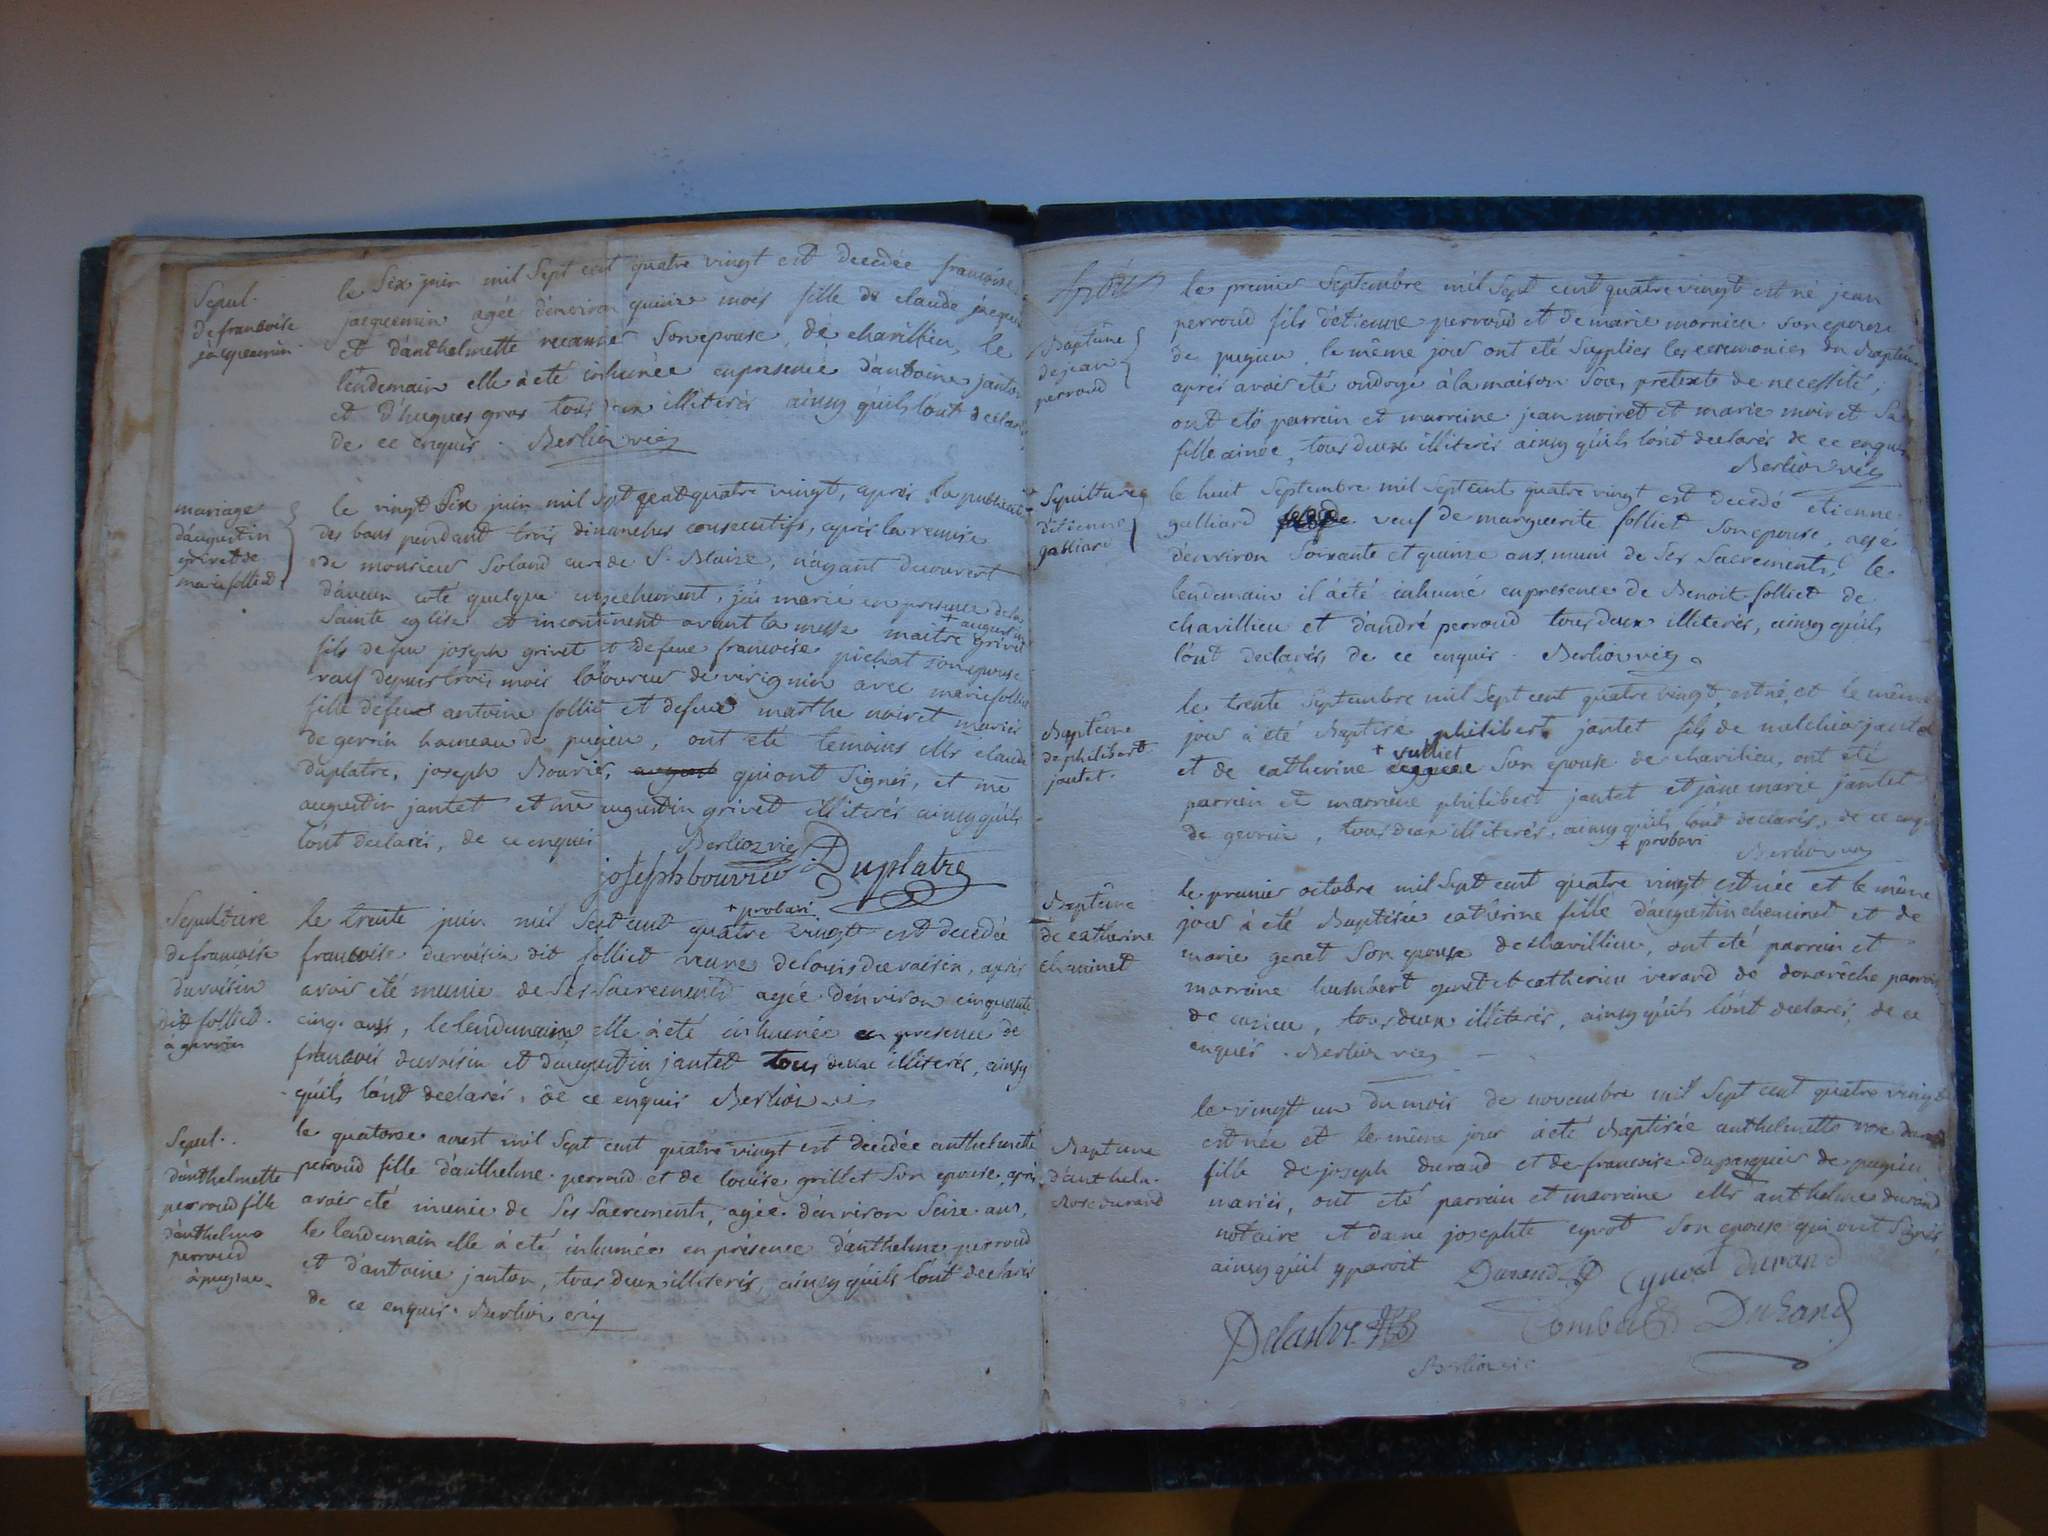 Sepul.
de francoise
jacquemin
le Six juin mil Sept cent quatre vingt est decedée francoise
jacquemin agée d'environ quinze mois fille de claude jacquemin
et d'anthelmette Son epouse de chavillieu, le
lendemain elle à eté inhumée en presence d'antoine janton
et d'hugues gros tous deux illiterés ainsy qu'ils l'ont declaré
de ce enquis. Berlioz vic
mariage
d'augustin
grivet de
marie folliet
le vingt Six juin mil Sept cent quatre vingt, après la publication
des bans pendant trois dimanches consecutifs, après la remise
de monsieur Soland curé de St Blaize, n'ayant decouvert
d'aucun coté quelque empechement, j'ai marié en presence de la
Sainte eglise et incontinent avant la messe maitre + augustin grivet
fils de feu joseph grivet et de feue francoise pichat son epouse
veuf depuis trois mois laboureur de virignin avec marie folliet
fille de feu antoine folliet et de feue marthe noiret mariés
de gevrin hameau de pugieu, ont eté temoins Mr claude
duplatre, joseph Bouvier, qui ont Signés, et me
augustin jantet et me augustin grivet illiterés ainsy qu'ils
l'ont declarés, de ce enquis Berlioz vic
joseph bouvier Duplatre
+ probavi
Sepulture
de francoise
duvoisin
dit folliet.
à gevrin
le trente juin mil Sept cent quatre vingt est decedée
francoise duvoisin dit folliet veuve de louis duvoisin, après
avoir eté munie de Ses Sacrements agée d'environ cinquante
cinq ans, le lendemain elle à eté inhumée en presence de
francois duvoisin et d'augustin jantet tous deux illiterés, ainsy
qu'ils l'ont declarés, de ce enquis Berlioz vic
Sepul.
d'anthelmette
perroud fille
d'anthelme
perroud
à pugieu
le quatorze aoust mil Sept cent quatre vingt est decedée anthelmette
perroud fille d'anthelme perroud et de louise grillet Son epouse, après
avoir eté munie de Ses Sacrements, agée d'environ Seize ans,
le lendemain elle à eté inhumée en présence d'anthelme perroud
et d'antoine janton, tous deux illiterés, ainsy qu'ils l'ont declarés
de ce enquis. Berlioz vic
Baptême
de jean
perroud
le premier Septembre mil Sept cent quatre vingt est né jean
perroud fils d'etienne perroud et de marie mornieu son epouse
de pugieu le même jour ont eté Supplées les ceremonies du Baptême
après avoir eté ondoyé à la maison Sous pretexte de necessité;
ont eté parrein et marreine jean moiret et marie moiret Sa
fille ainée, tous deux illiterés ainsy qu'ils l'ont declarés de ce enquis
Berlioz vic
Sepulture
d'etienne
galliard
le huit Septembre mil Sept cent quatre vingt est decedé etienne
galliard veuf de marguerite folliet Son epouse, agé
d'environ Soixante et quinze ans, muni de Ses Sacrements, le
lendemain il à été inhumé en presence de Benoit folliet de
chavillieu et d'andré perroud tous deux illiterés, ainsy qu'ils
l'ont declarés, de ce enquis. Berlioz vic
Baptême
de philibert
jantet.
le trente Septembre mil Sept cent quatre vingt, est né, et le même
jour à été Baptisé philibert jantet fils de melchior jantet
et de catherine + vulliet Son epouse de chavilieu, ont été
parrein et marreine philibert jantet et jane marie jantet
de gevrin, tous deux illiterés, ainsy qu'ils l'ont declarés, de ce enquis
+ probavi Berlioz vic
Baptême
de catherine
cheminet
le premier octobre mil Sept cent quatre vingt est née et le même
jour à été Baptisée catherine fille d'augustin cheminet et de
marie genet Son epouse de chavillieu, ont eté parrein et
marreine humbert genet et catherine verard de
de cuzieu, tous deux illiterés, ainsy qu'ils l'ont declarés, de ce
enquis. Berlioz vic
Baptême
d'anthelm.
Rose durand
le vingt un du mois de novembre mil Sept cent quatre vingt
est née et le même jour à eté Baptisée anthelmette rose durand
fille de joseph durand et de francoise dupasquier de pugieu
mariés, ont eté parrein et marreine Mr anthelme durand
notaire et dame josephte eynot Son epouse qui ont Signés,
ainsy qu'il y paroit Durand Eynot Durand
Delastre Durand
Berlioz vic